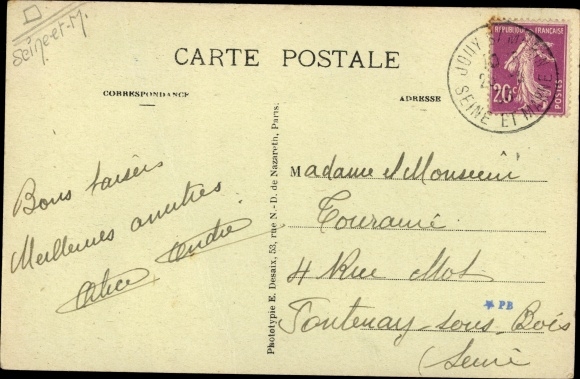 Seine-et-M.
CARTE POSTALE
CORRESPONDANCE
ADRESSE
RÉPUBLIQUE FRANÇAISE
20c
POSTES
JOUY
SEINE ET MARNE
Bons baisers
Meilleures amitiés
Alice André
Phototypie E. Desaix, 53, rue N.-D. de Nazareth, Paris.
Madame et Monsieur
Touramé
4 Rue Mot
* PB
Fontenay-sous-Bois
(Seine